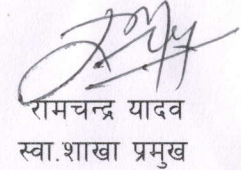 रामचन्द्र यादव
स्वा.शाखा प्रमुख